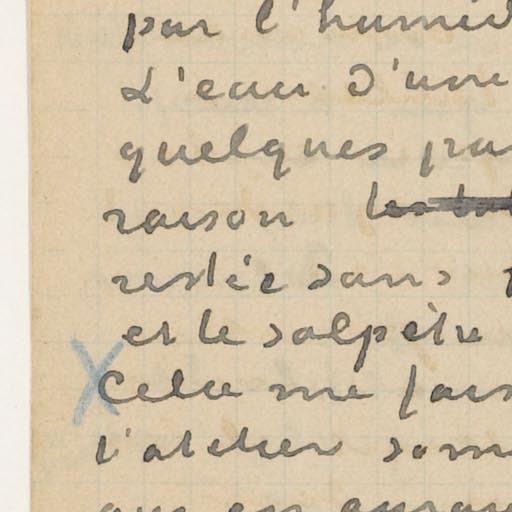 par l'humid
L'eau d'une
quelques pa
raison les
restée sans
et le salpêtre
Cela me fais
l'atelier somm